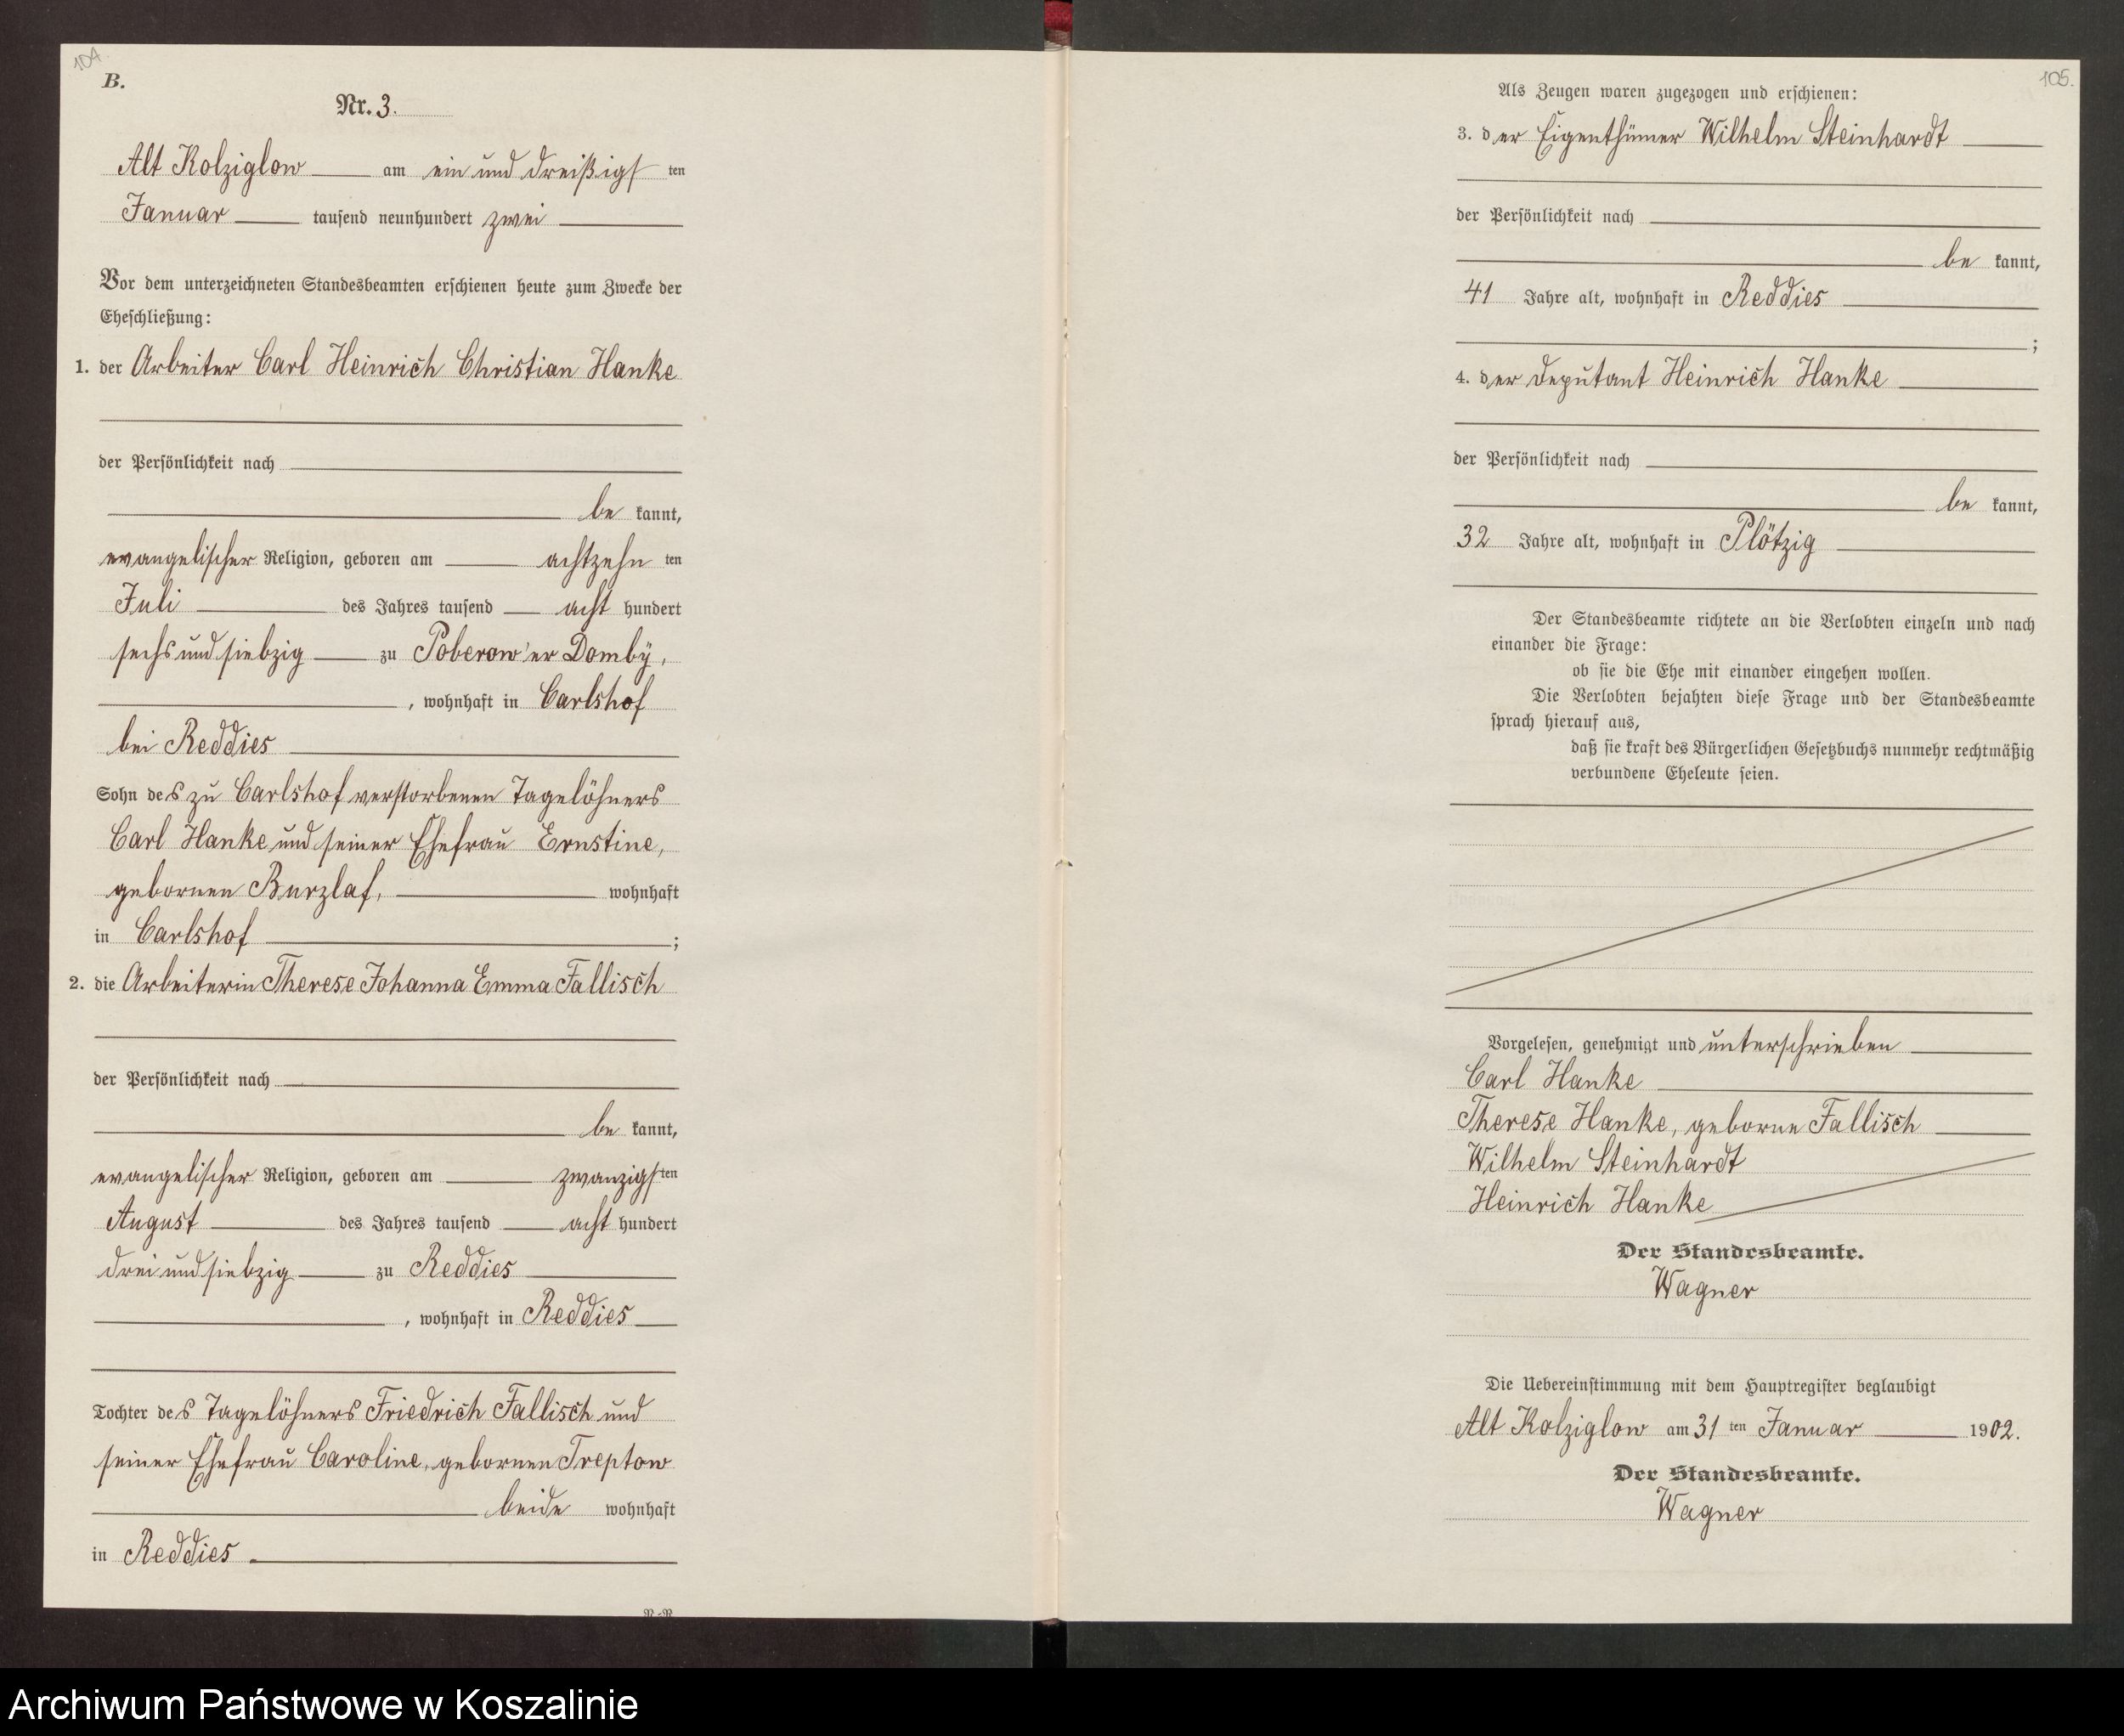 104.
B.
Nr. 3.
Alt Kolziglow am ein und dreißigsten
Januar tausend neunhundert zwei
Vor dem unterzeichneten Standesbeamten erschienen heute zum Zwecke der
Eheschließung:
1. der Arbeiter Carl Heinrich Christian Hanke
der Persönlichkeit nach
be kannt,
evangelischer Religion, geboren am achtzehn ten
Juli des Jahres tausend acht hundert
sechs und siebzig zu Poberow'er Domby,
, wohnhaft in Carlshof
bei Reddies
Sohn des zu Carlshof verstorbenen Tagelöhners
Carl Hanke und seiner Ehefrau Ernstine,
gebornen Burzlaf, wohnhaft
in Carlshof ;
2. die Arbeiterin Therese Johanna Emma Fallisch
der Persönlichkeit nach
be kannt,
evangelischer Religion, geboren am zwanzigsten
August des Jahres tausend acht hundert
drei und siebzig zu Reddies
, wohnhaft in Reddies
Tochter des Tagelöhners Friedrich Fallisch und
seiner Ehefrau Caroline, gebornen Treptow
beide wohnhaft
in Reddies.
105.
Als Zeugen waren zugezogen und erschienen:
3. der Eigenthümer Wilhelm Steinhardt
der Persönlichkeit nach
be kannt,
41 Jahre alt, wohnhaft in Reddies
;
4. der Deputant Heinrich Hanke
der Persönlichkeit nach
be kannt,
32 Jahre alt, wohnhaft in Plötzig
Der Standesbeamte richtete an die Verlobten einzeln und nach
einander die Frage:
ob sie die Ehe mit einander eingehen wollen.
Die Verlobten bejahten diese Frage und der Standesbeamte
sprach hierauf aus,
daß sie kraft des Bürgerlichen Gesetzbuchs nunmehr rechtmäßig
verbundene Eheleute seien.
Vorgelesen, genehmigt und unterschrieben
Carl Hanke
Therese Hanke, geborne Fallisch
Wilhelm Steinhardt
Heinrich Hanke
Der Standesbeamte.
Wagner
Die Uebereinstimmung mit dem Hauptregister beglaubigt
Alt Kolziglow am 31 ten Januar 1902.
Der Standesbeamte.
Wagner
Archiwum Państwowe w Koszalinie